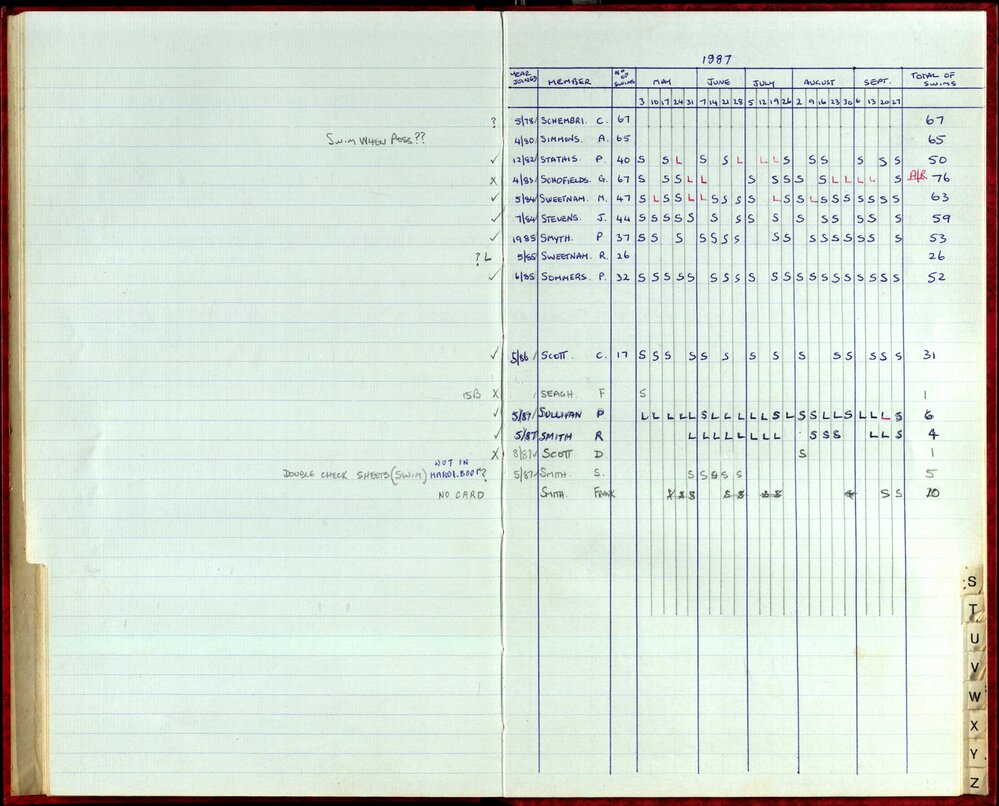 1987
YEAR JOINED MEMBER No OF SWIMS MAY JUNE JULY AUGUST SEPT. TOTAL OF SWIMS
3 10 17 24 31 7 14 21 28 5 12 19 26 2 9 16 23 30 6 13 20 27
? 5/78 SCHEMBRI. C. 67 67
SWIM WHEN POSS?? 4/80 SIMMONS. A. 65 65
✓ 12/82 STATHIS P. 40 S S L S S L L L S S S S S S 50
X 4/83 SCHOFIELDS. G. 67 S S S L L S S S S S L L L L S A/R 76
✓ 5/84 SWEETNAM. M. 47 S L S S L L S S S S L S S L S S S S S S S 63
✓ 7/84 STEVENS. J. 44 S S S S S S S S S S S S S S S 59
✓ 1985 SMYTH. P 37 S S S S S S S S S S S S S S S S 53
? L 5/85 SWEETNAM. R. 26 26
✓ 6/85 SOMMERS. P. 32 S S S S S S S S S S S S S S S S S S S S 52
✓ 5/86 SCOTT. C. 17 S S S S S S S S S S S S S S 31
15B X SEAGH. F S 1
✓ 5/87 SULLIVAN P L L L L L S L L L L L S L S S L L S L L L S 6
✓ 5/87 SMITH R L L L L L L L L S S S L L S 4
X 8/87 SCOTT D S 1
DOUBLE CHECK SHEETS (SWIM) NOT IN HANDI. BOOK? 5/87 SMITH. S. S S S S S 5
NO CARD SMITH. FRANK S S S S S S S S S 10
S
T
U
V
W
X
Y
Z